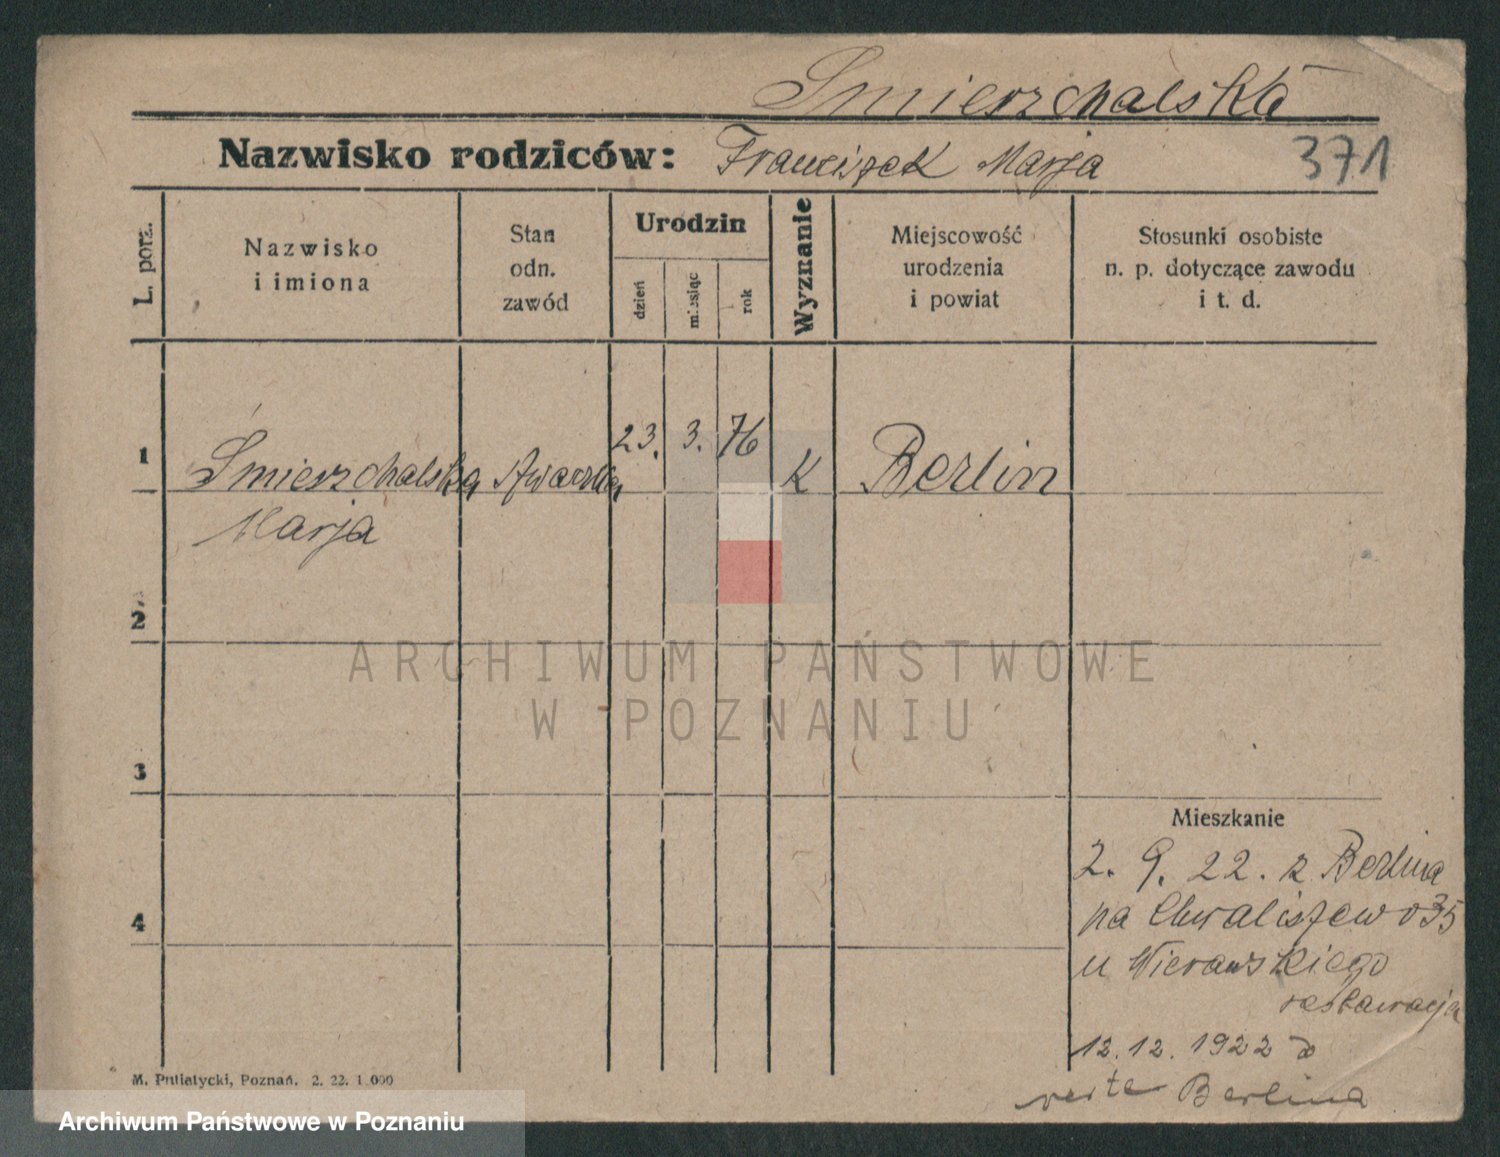 Śmierzchalska
Nazwisko rodziców: Franciszek Marja 371
L. porz.
Nazwisko
i imiona
Stan
odn.
zawód
Urodzin
dzień
miesiąc
rok
Wyznanie
Miejscowość
urodzenia
i powiat
Stosunki osobiste
n. p. dotyczące zawodu
i t. d.
1 Śmierzchalska 23. 3. 76 K Berlin
Marja
2
ARCHIWUM PAŃSTWOWE
W POZNANIU
3
Mieszkanie
2. 9. 22. z Berlina
4 na Chwaliszewo 35
u Wierawskiego
restauracja
12. 12. 1922 do
Berlina
M. Putiatycki, Poznań. 2. 22. 1.000
Archiwum Państwowe w Poznaniu